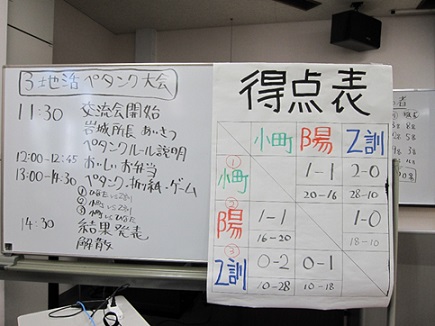 3地活 ペタンク大会
11:30 交流会開始
岩城所長 あいさつ
ペタンクルール説明
12:00-12:45 おいしいお弁当
13:00-14:30 ペタンク・折り紙・ゲーム
14:30 結果発表
解散
得点表
小町 β陽 Z訓
① 小町 1-1 2-0
20-16 28-10
② β陽 1-1 1-0
16-20 18-10
③ Z訓 0-2 0-1
10-28 10-18